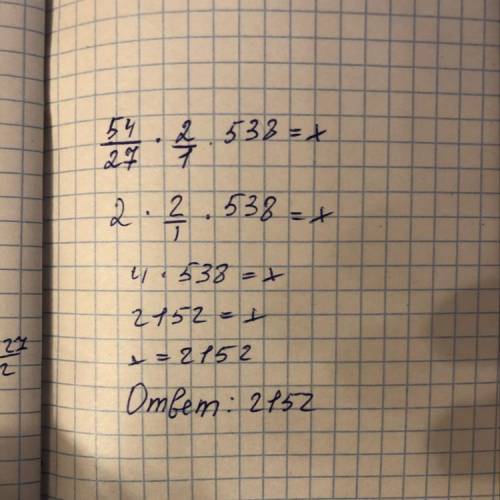 54/27 · 2/1 · 538 = x
2 · 2/1 · 538 = x
4 · 538 = x
2152 = x
x = 2152
Ответ: 2152
27/2